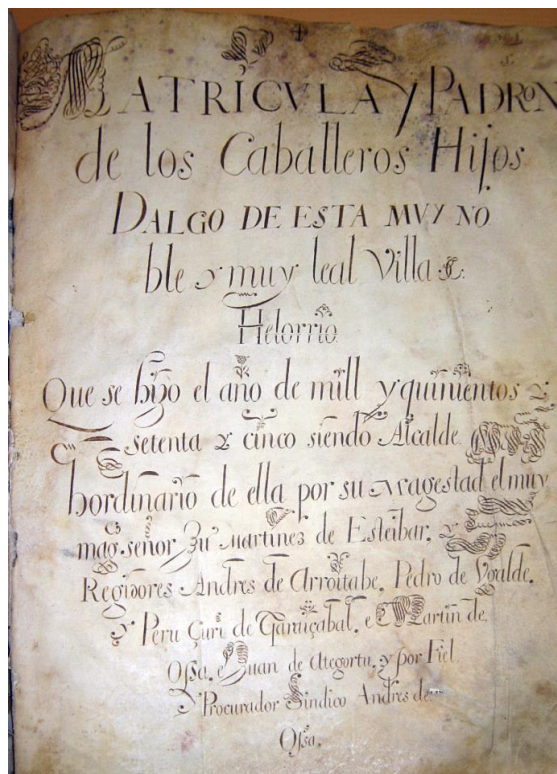 MATRÍCVLA y PADRON
de los Caballeros Hijos
DALGO DE ESTA MVY NO
ble y muy leal Villa
Helorrio
Que se hizo el año de mill y quinientos y
setenta y cinco siendo Alcalde
hordinario de ella por su Magestad el muy
mag. señor Martinez de Esteibar, y
Regidores Andres de Arroitabe, Pedro de Vgalde,
y Peru Çuri de Garuçabal, e Martin de
Ossa, e Juan de Ategortu, y por Fiel
y Procurador Sindico Andres de
Ossa.